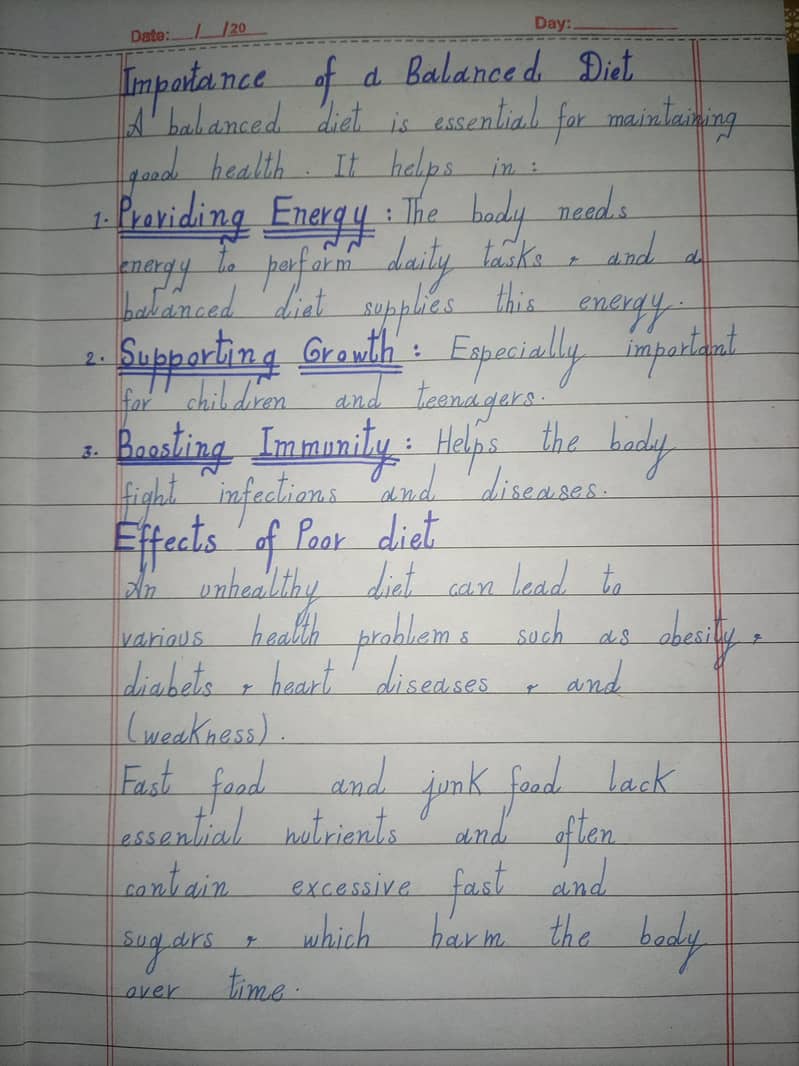 Date: __/__/20__ Day: ________
Importance of a Balanced Diet
A balanced diet is essential for maintaining
good health. It helps in:
1. Providing Energy: The body needs
energy to perform daily tasks, and a
balanced diet supplies this energy.
2. Supporting Growth: Especially important
for children and teenagers.
3. Boosting Immunity: Helps the body
fight infections and diseases.
Effects of Poor diet
An unhealthy diet can lead to
various health problems such as obesity,
diabets, heart diseases, and
(weakness).
Fast food and junk food lack
essential nutrients and often
contain excessive fast and
sugars, which harm the body
over time.